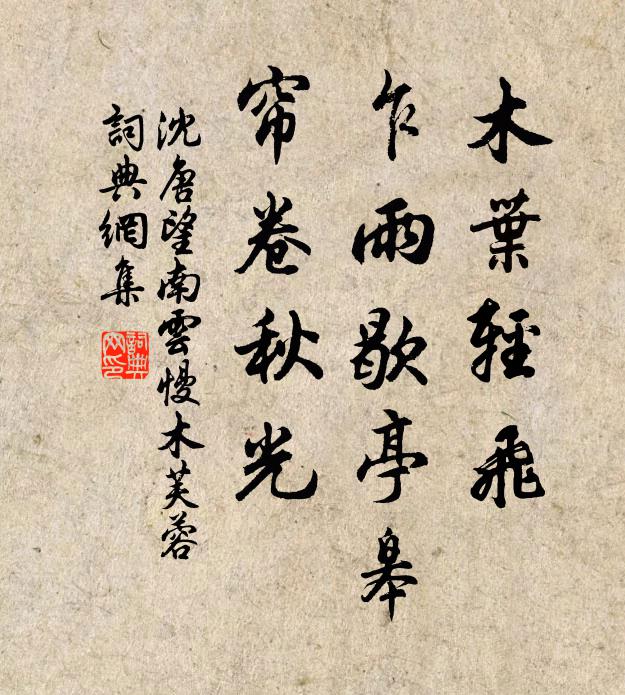 木葉輕飛
乍雨歇亭皋
帘卷秋光
沈唐望南雲慢木芙蓉
詞典網集
詞典網印